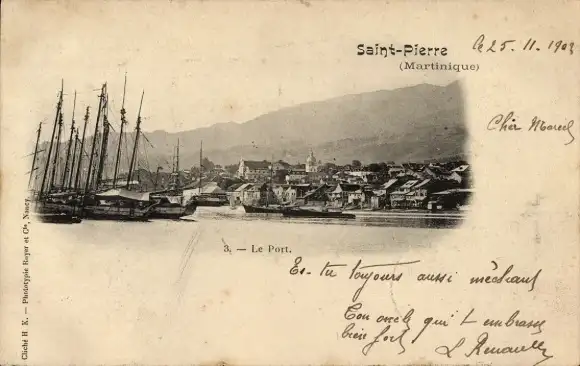 Saint-Pierre
(Martinique)
le 25. 11. 1903
Cher Marcel
3. — Le Port.
Es-tu toujours aussi méchant
Ton oncle qui t'embrasse
bien fort
Cliché H. K. — Phototypie Royer et Cie, Nancy.